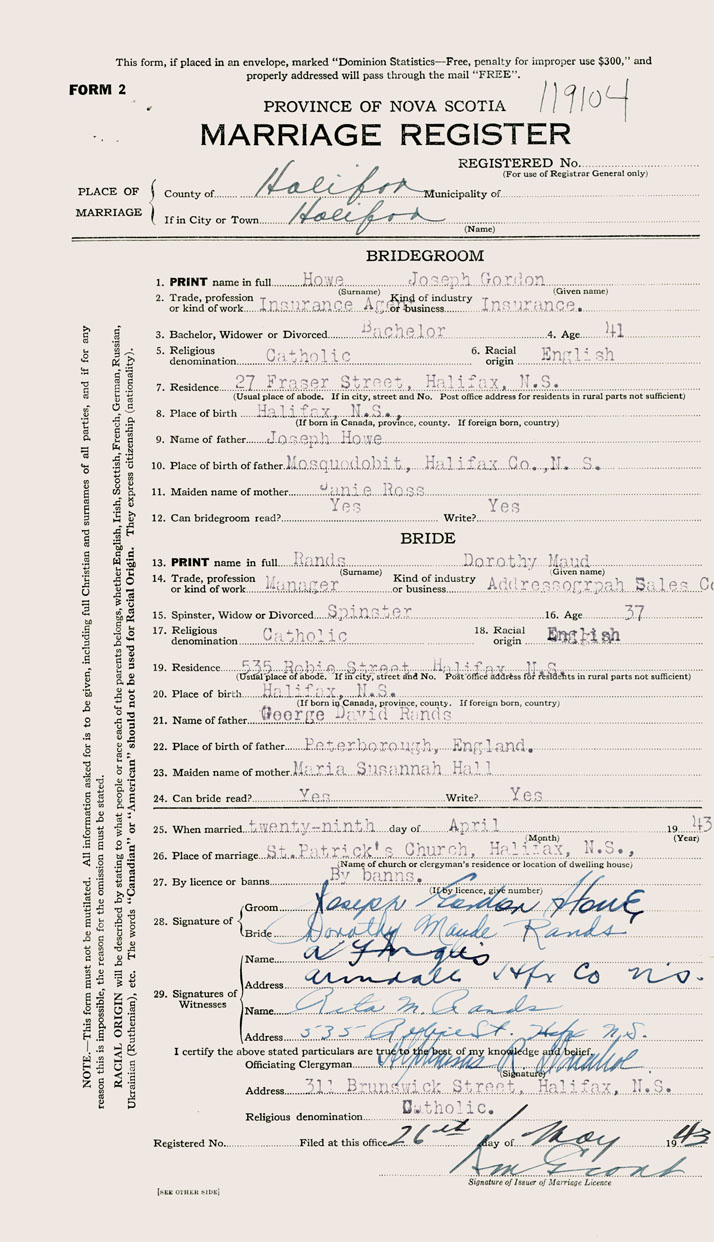 This form, if placed in an envelope, marked "Dominion Statistics—Free, penalty for improper use $300," and
properly addressed will pass through the mail "FREE".
FORM 2
119104
PROVINCE OF NOVA SCOTIA
MARRIAGE REGISTER
REGISTERED No.
(For use of Registrar General only)
PLACE OF MARRIAGE
County of Halifax Municipality of
If in City or Town Halifax
(Name)
BRIDEGROOM
1. PRINT name in full Howe Joseph Gordon
(Surname) (Given name)
2. Trade, profession or kind of work Insurance Agent Kind of industry or business Insurance.
3. Bachelor, Widower or Divorced Bachelor 4. Age 41
5. Religious denomination Catholic 6. Racial origin English
7. Residence 27 Fraser Street, Halifax, N.S.
(Usual place of abode. If in city, street and No. Post office address for residents in rural parts not sufficient)
8. Place of birth Halifax, N.S.,
(If born in Canada, province, county. If foreign born, country)
9. Name of father Joseph Howe
10. Place of birth of father Mosquodobit, Halifax Co.,N. S.
11. Maiden name of mother Janie Ross
12. Can bridegroom read? Yes Write? Yes
BRIDE
13. PRINT name in full Rands Dorothy Maud
(Surname) (Given name)
14. Trade, profession or kind of work Manager Kind of industry or business Addressogrpah Sales Co
15. Spinster, Widow or Divorced Spinster 16. Age 37
17. Religious denomination Catholic 18. Racial origin English
19. Residence 535 Robie Street, Halifax, N.S.
(Usual place of abode. If in city, street and No. Post office address for residents in rural parts not sufficient)
20. Place of birth Halifax, N.S.
(If born in Canada, province, county. If foreign born, country)
21. Name of father George David Rands
22. Place of birth of father Peterborough, England.
23. Maiden name of mother Maria Susannah Hall
24. Can bride read? Yes Write? Yes
25. When married twenty-ninth day of April 19 43
(Month) (Year)
26. Place of marriage St.Patrick's Church, Halifax, N.S.,
(Name of church or clergyman's residence or location of dwelling house)
27. By licence or banns By banns.
(If by licence, give number)
28. Signature of
Groom Joseph Gordon Howe
Bride Dorothy Maude Rands
29. Signatures of Witnesses
Name
Address Armdale Hfx Co N.S.
Name Rita M. Rands
Address 535 Robie St. Hfx N.S.
I certify the above stated particulars are true to the best of my knowledge and belief.
Officiating Clergyman
(Signature)
Address 311 Brunswick Street, Halifax, N.S.
Religious denomination Catholic.
Registered No. Filed at this office 26th day of May 19 43
Signature of Issuer of Marriage Licence
[SEE OTHER SIDE]
NOTE.—This form must not be mutilated. All information asked for is to be given, including full Christian and surnames of all parties, and if for any
reason this is impossible, the reason for the omission must be stated.
RACIAL ORIGIN will be described by stating to what people or race each of the parents belongs, whether English, Irish, Scottish, French, German, Russian,
Ukrainian (Ruthenian), etc. The words "Canadian" or "American" should not be used for Racial Origin. They express citizenship (nationality).